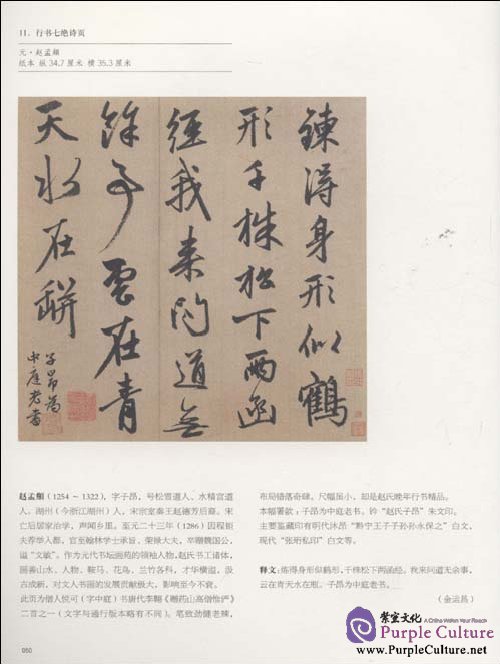 11. 行书七绝诗页
元·赵孟頫
纸本 纵34.7厘米 横35.3厘米
鍊得身形似鶴
形千株松下兩函
經我来问道無
餘事雲在青
天水在缾
子昂為
中庭老書
赵孟頫（1254～1322），字子昂，号松雪道人、水精宫道
人。湖州（今浙江湖州）人，宋宗室秦王赵德芳后裔。宋
亡后居家治学，声闻乡里。至元二十三年（1286）因程钜
夫荐举入都，官至翰林学士承旨，荣禄大夫，卒赠魏国公，
谥“文敏”。作为元代书坛画苑的领袖人物，赵氏书工诸体，
画善山水、人物、鞍马、花鸟、兰竹各科，才华横溢，汲
古成新，对文人书画的发展贡献极大，影响至今不衰。
此页为僧人悦可（字中庭）书唐代李翱《赠药山高僧惟俨》
二首之一（文字与通行版本略有不同）。笔致劲健老辣，
布局错落奇肆。尺幅虽小，却是赵氏晚年行书精品。
本幅署款：子昂为中庭老书。钤“赵氏子昂”朱文印。
主要鉴藏印有明代沐昂“黔宁王子子孙孙永保之”白文，
现代“张珩私印”白文等。
释文：炼得身形似鹤形，千株松下两函经。我来问道无余事，
云在青天水在瓶。子昂为中庭老书。
（金运昌）
050
紫宣文化 A China Within Your Reach
Purple Culture
www.PurpleCulture.net